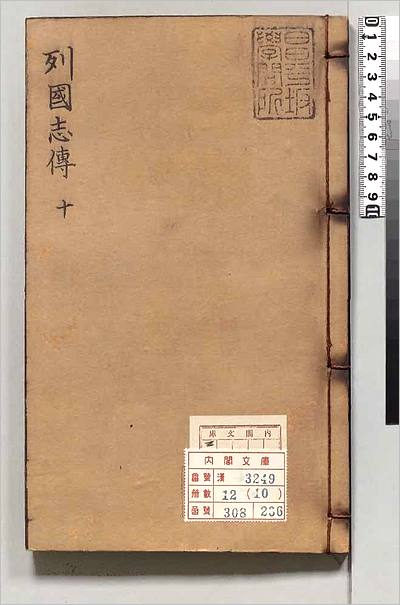 列國志傳 十
昌平坂
學問所
內閣文庫
內閣文庫
番號 漢 3249
冊數 12 (10)
函號 308 266
0 1 2 3 4 5 6 7 8 9 10